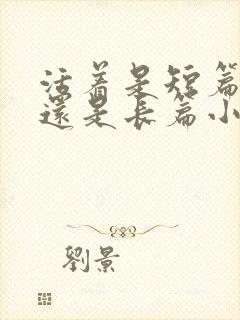 活着是短篇
還是長篇小
劉景